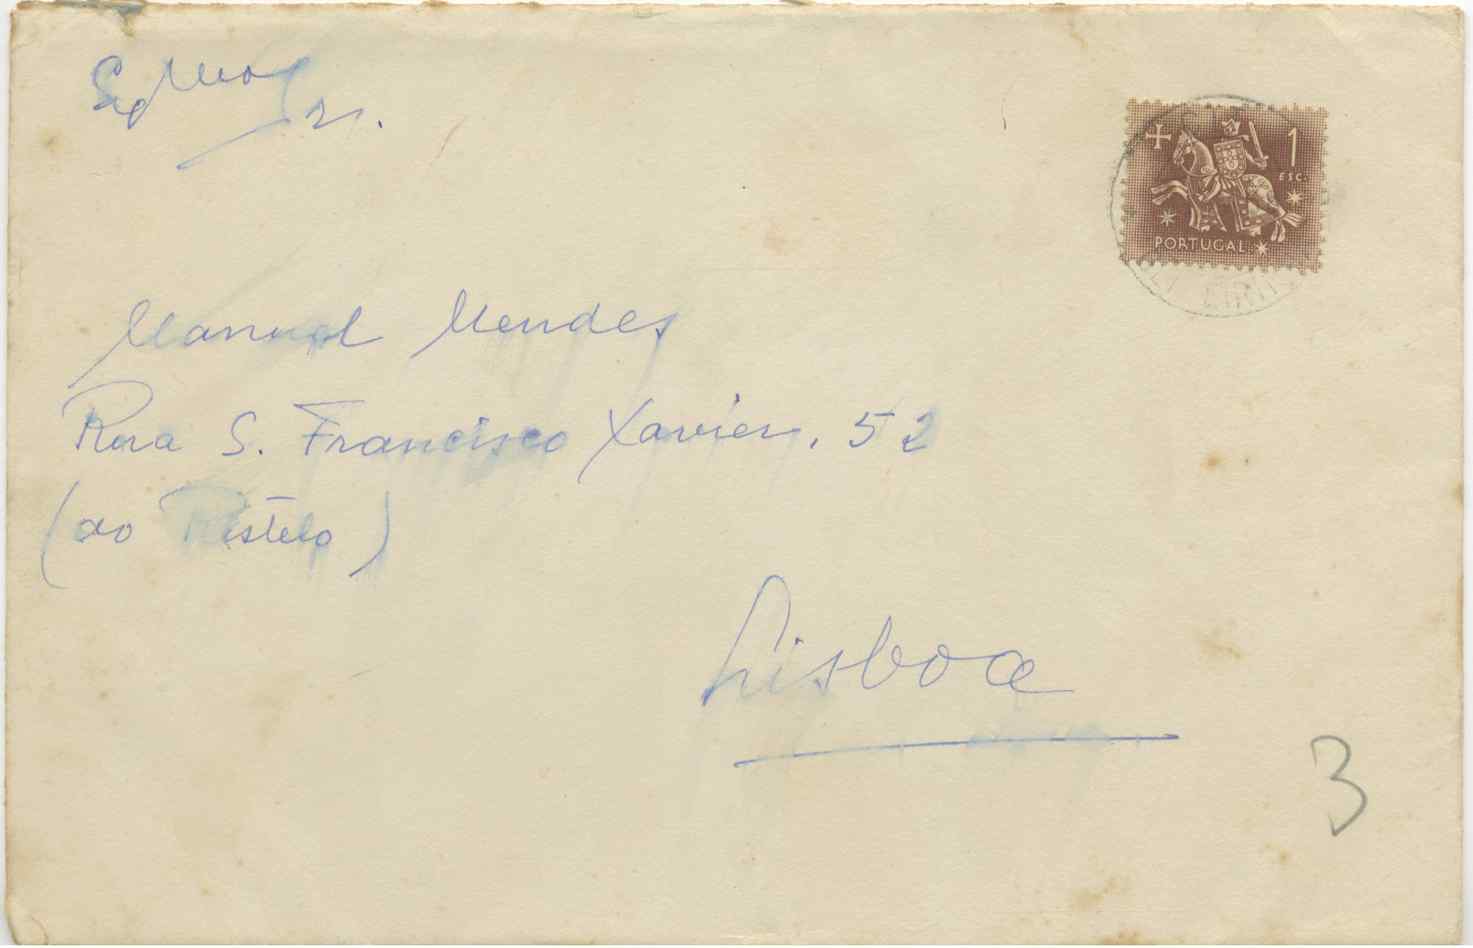 Exmo Sr.
1
ESC.
PORTUGAL
Manuel Mendes
Rua S. Francisco Xavier, 52
(ao Restelo)
Lisboa
3